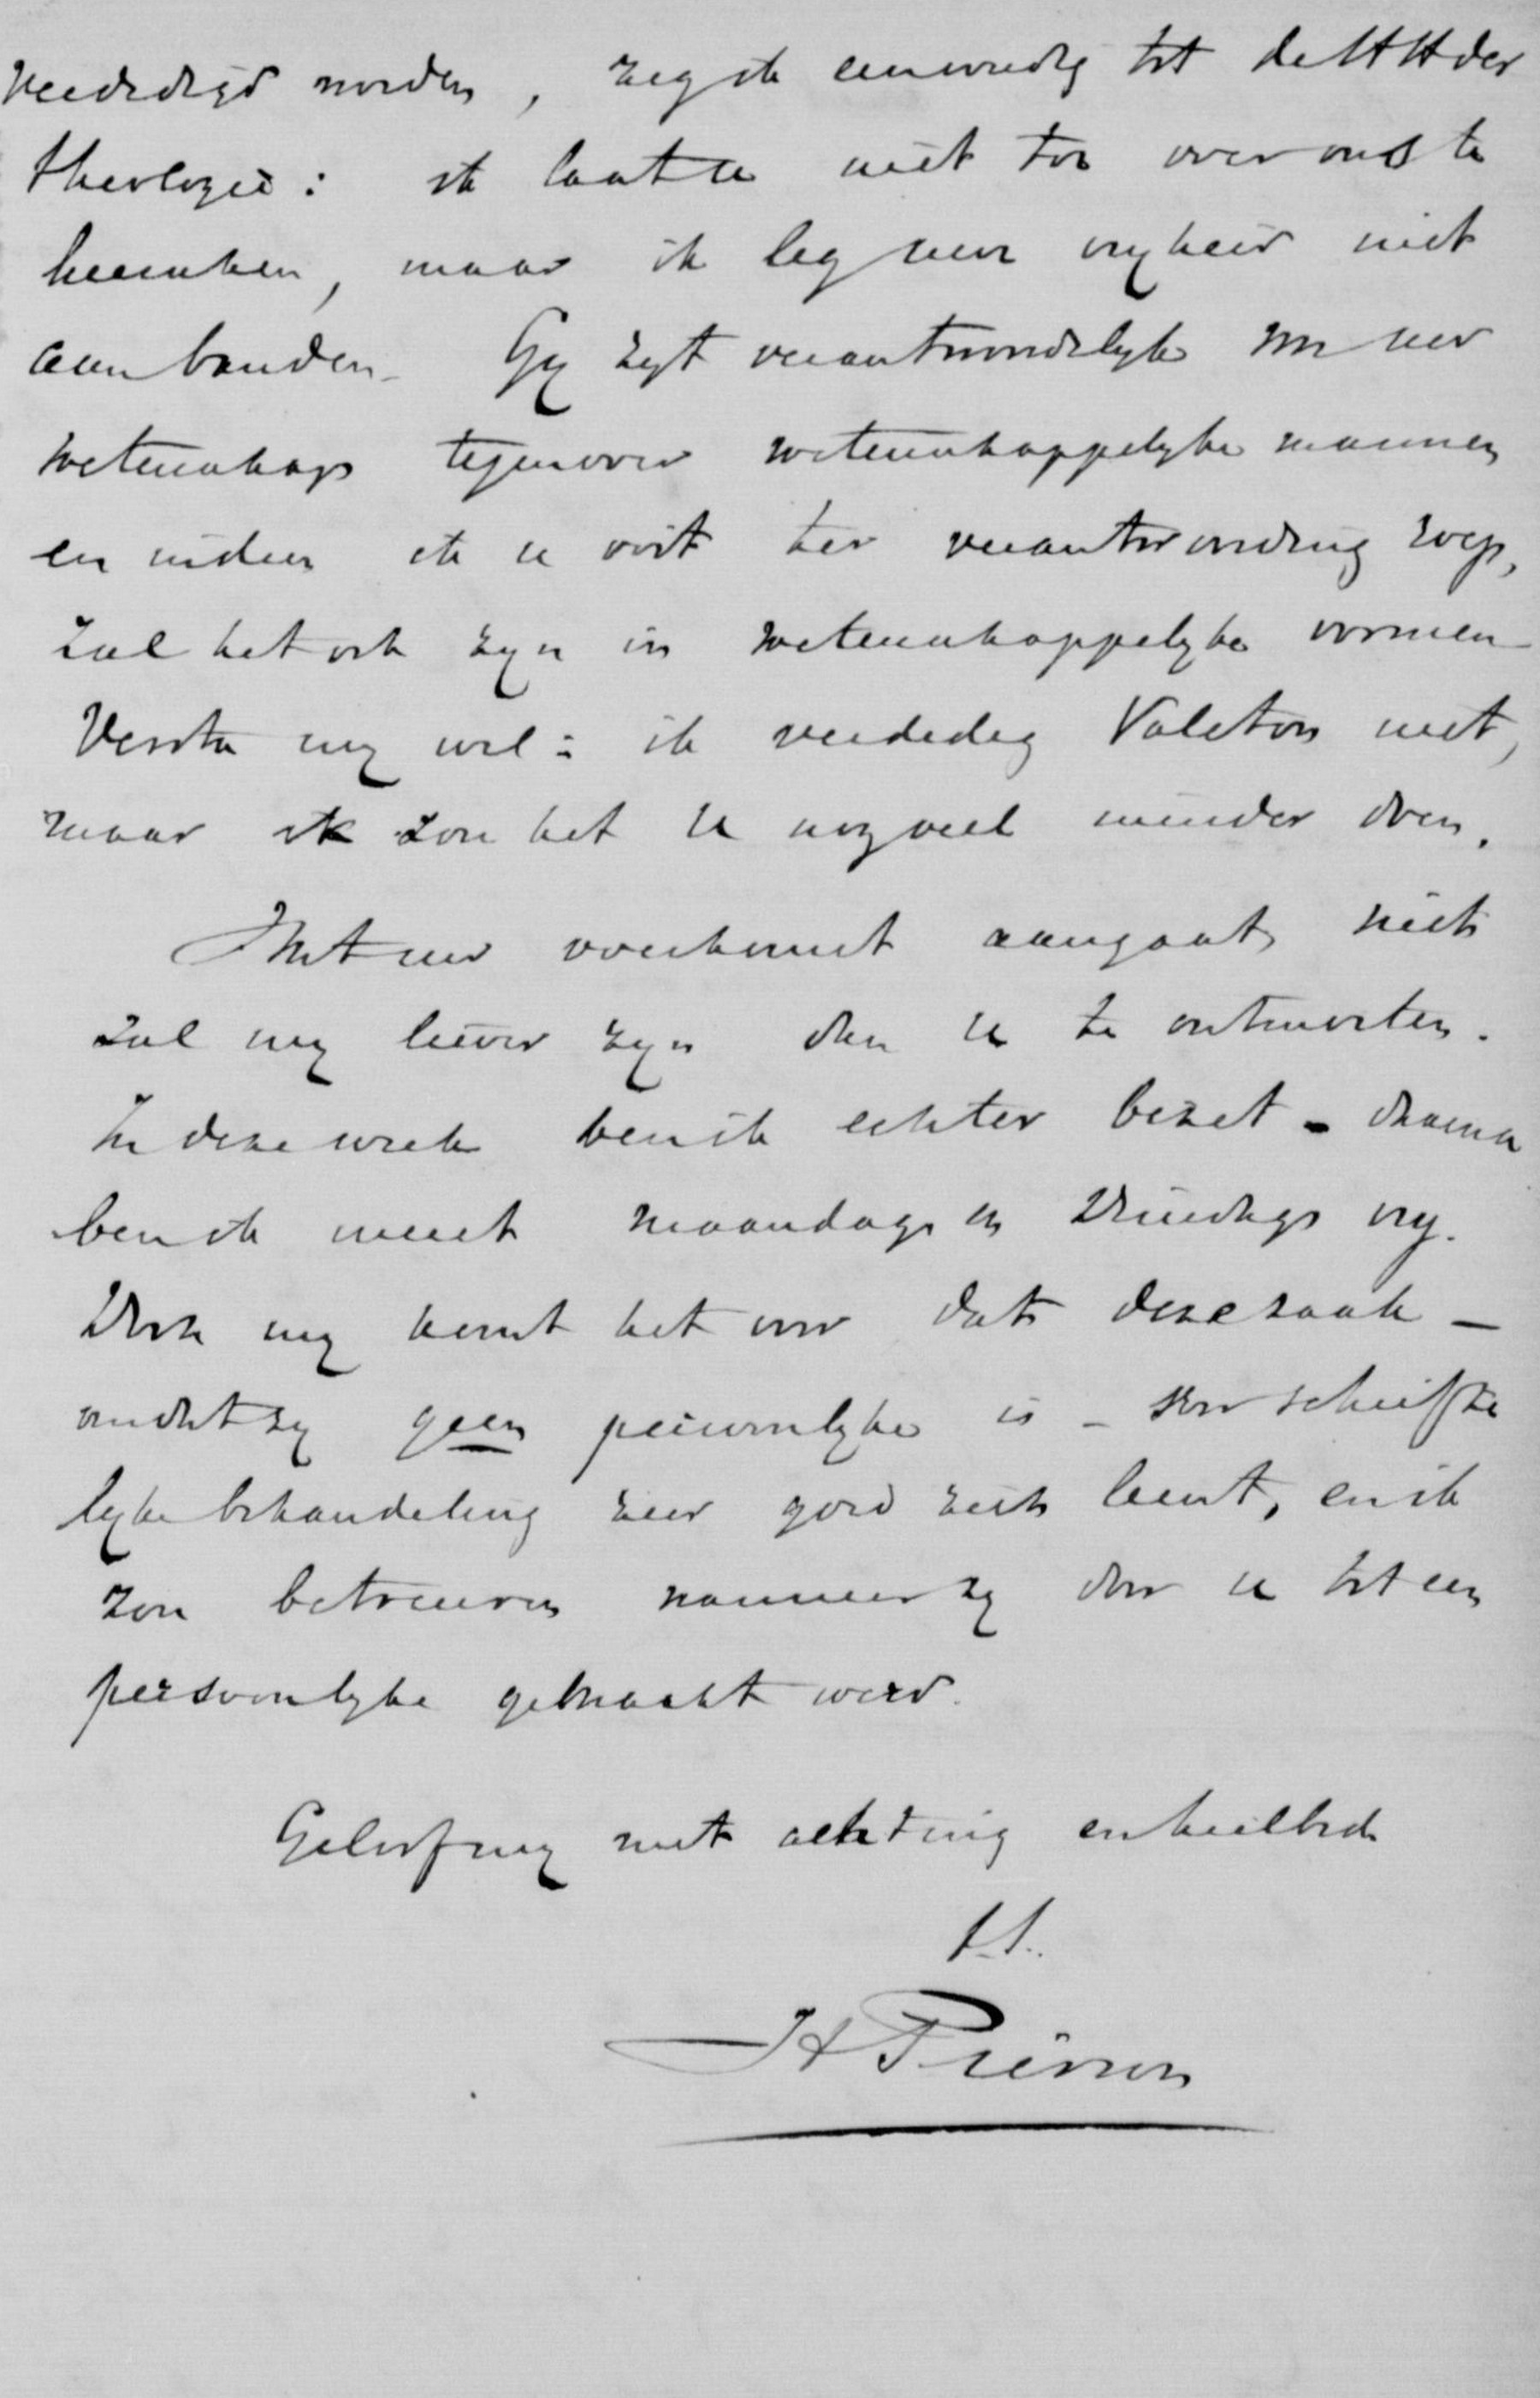 verdedigd worden, zeg ik eenvoudig tot de HH der
theologie: ik laat u niet toe over ons te
heerschen, maar ik leg uwe vryheid niet
aan banden. Gy zyt verantwoordelyk voor uw
wetenschap tegenover wetenschappelyke mannen
en indien ik u ooit ter verantwoording roep,
zal het ook zyn in wetenschappelyke vormen
Versta my wel: ik verdedig Valeton niet,
maar ik zou het U nog veel minder doen.
Wat uw overkomst aangaat, niets
zal my liever zyn dan U te ontmoeten.
In deze week ben ik echter bezet – daarna
ben ik meest maandags en Dinsdags vry.
Doch my komt het voor dat deze zaak –
omdat zy geen persoonlyke is – voor schrifte
lyke behandeling zeer goed zich leent, en ik
zou betreuren wanneer zy door u tot een
persoonlyke gemaakt werd.
Geloof my met achting en heilbede
t.t.
H Pierson